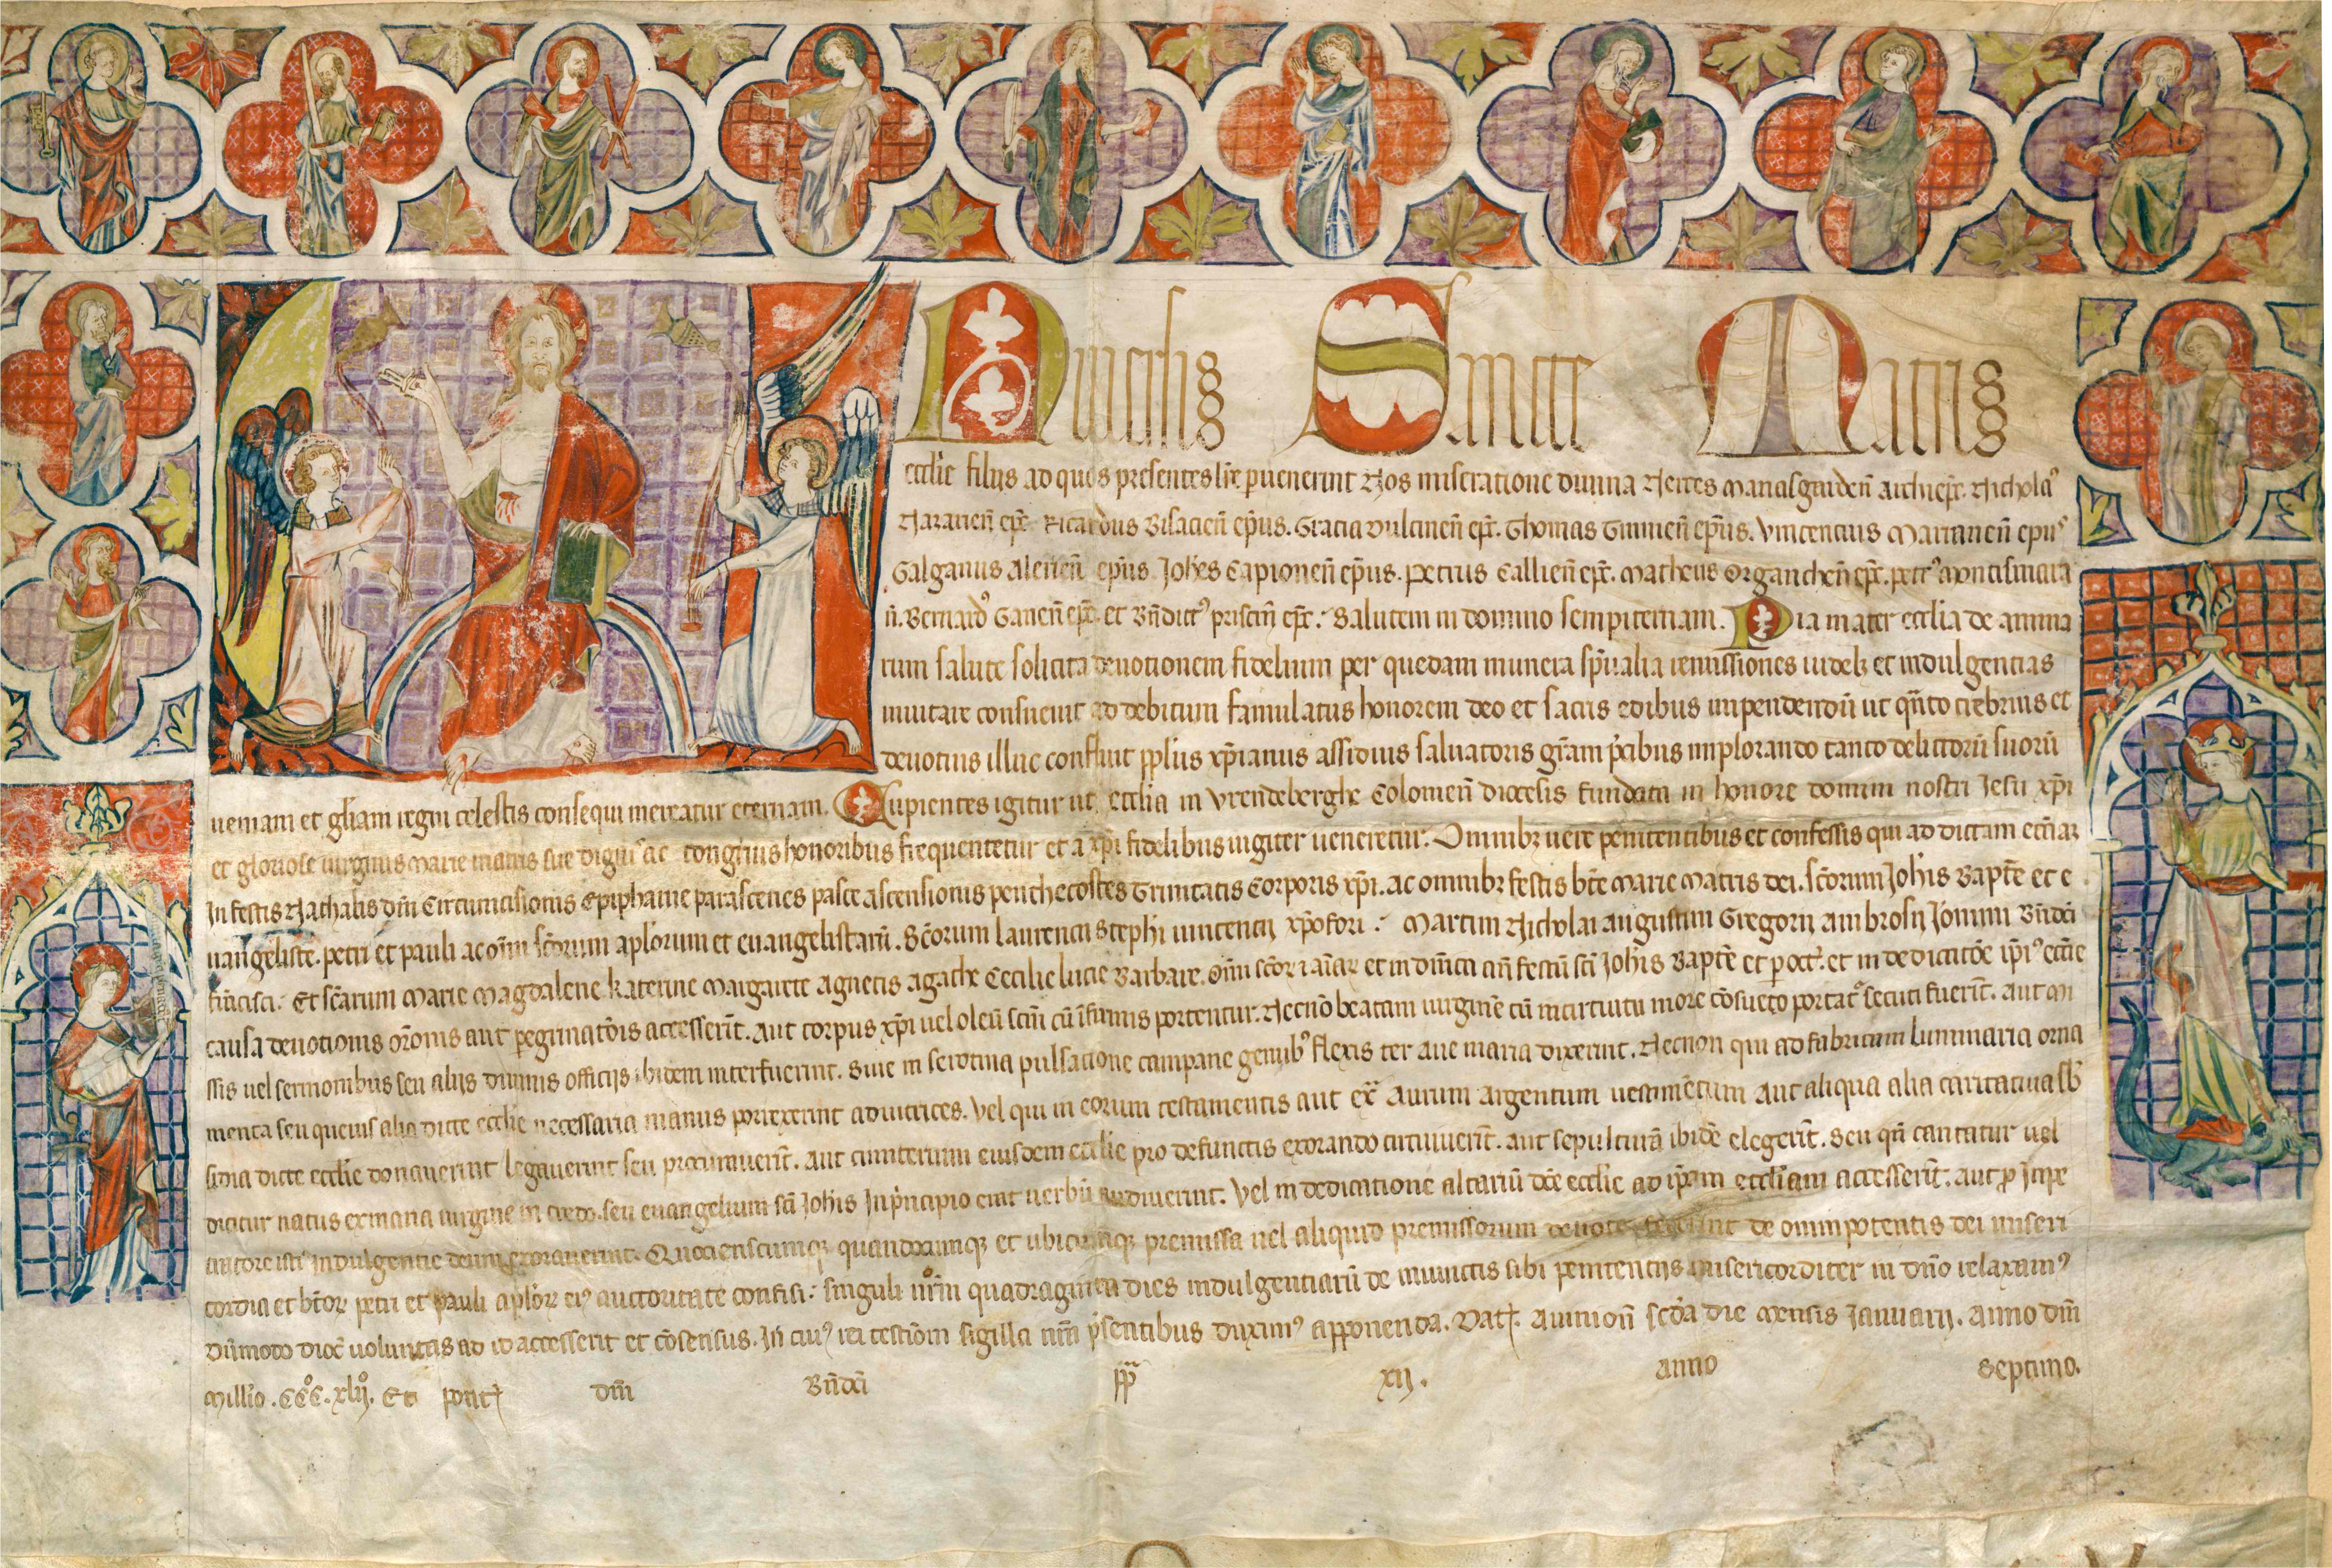 Universis Sancte Matris
ecclie filijs ad quos presentes lre puenerint Nos miseratione diuina Nerses Manasgarden archiepc. Nichola9
Nazarien epc Ricardus Bisacien epus. Gracia Dulcinen epc. Thomas Tininen epus. Vincencius Marianen epus
Galganus Alerien epus Johes Capionen epus. Petrus Callien epc. Matheus Organchen epc. petr9 montismara
n. Bernard9 Ganen epc. et Bndict9 priscin epc. Salutem in domino sempiternam. Pia mater ecclia de anima
rum salute solicita deuotionem fidelium per quedam munera spualia remissiones uidelz et indulgencias
inuitare consueuit ad debitum famulatus honorem deo et sacris edibus impendendu ut qnto crebrius et
deuotius illuc confluit pplus xpianus assiduis saluatoris gram pcibus implorando tanto delictoru suoru
ueniam et gliam regni celestis consequi mereatur eternam. Cupientes igitur ut ecclia in Vrendeberghe Colonien diocesis fundata in honore domini nostri Jesu xpi
et gloriose uirginis Marie matris sue dignis ac congruis honoribus frequentetur et a xpi fidelibus iugiter ueneretur. Omnibz uere penitentibus et confessis qui ad dictam eccliam
In festis Nathalis dni Circumcisionis Epiphanie parasceues pasce ascensionis penthecostes Trinitatis Corporis xpi. ac omnibz festis bte Marie Matris dei. scorum Johis Bapte et e
uangeliste. petri et pauli ac oim scorum aplorum et euangelistaru. Scorum Laurencij Stephi uincencij xpofori Martini Nicholai augustini Gregorij ambrosij Ieronimi Bndci
fracisci. Et scarum Marie Magdalene katerine Margarete agnetis agathe Cecilie lucie Barbare. Oim scor et aiar et in dnica an festu sci Johis Bapte et p oct. et in dedicatoe ipi9 ecclie
causa deuotionis oronis aut pegrinatois accesserit. aut corpus xpi uel oleu scm cu ifirmis portentur. Necno beatam uirgine cu in circuitu more cosueto portat9 secuti fuerit. aut mi
ssis uel sermonibus seu alijs diuinis officijs ibidem interfuerint. siue in serotina pulsacione campane genib9 flexis ter aue maria dixerint. Necnon qui ad fabricam luminaria orna
menta seu queuis alia dicte ecclie necessaria manus porrexerint adiutrices. Vel qui in eorum testamentis aut ext aurum argentum uestimentum aut aliqua alia caritatiua sb
sidia dicte ecclie donauerint legauerint seu procurauerit. aut cimiterium eiusdem ecclie pro defunctis exorando circuiuerit. aut sepultura ibide elegerit. seu qn cantatur uel
dicitur natus ex maria uirgine in credo. seu euangelium sci Johis In principio erat uerbu audiuerint. Vel in dedicatione altariu dce ecclie ad ipam eccliam accesserit. aut p Impe
tratore isti9 Indulgentie deum exorauerint. Quocienscumqz quandocumqz et ubicumqz premissa uel aliquid premissorum deuote fecerint de omnipotentis dei miseri
cordia et btor petri et pauli aplor ei9 auctoritate confisi. singuli nrm quadraginta dies indulgentiaru de iniunctis sibi penitencijs misericorditer in dno relaxam9
Dumodo dioc uoluntas ad id accesserit et cosensus. In cui9 rei testiom sigilla nra psentibus duxim9 apponenda. Dat. Auinion scda die Mensis Januarij. Anno dni
Millio. CCC. xlij. Et pont dni Bndci pp xij. anno septimo.